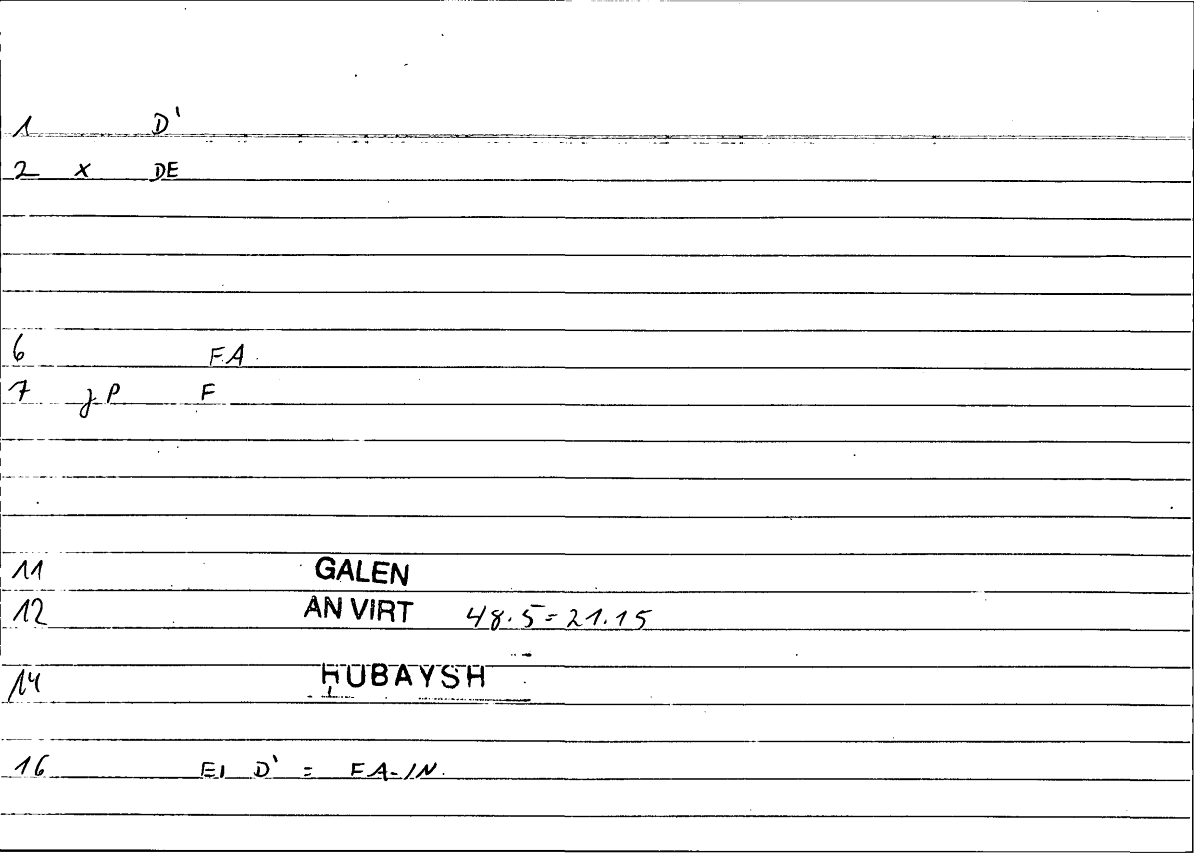 1 D'
2 x DE
6 FA.
7 jP F
11 GALEN
12 AN VIRT 48.5=21.15
14 HUBAYSH
16 EI D' = FA-IN.